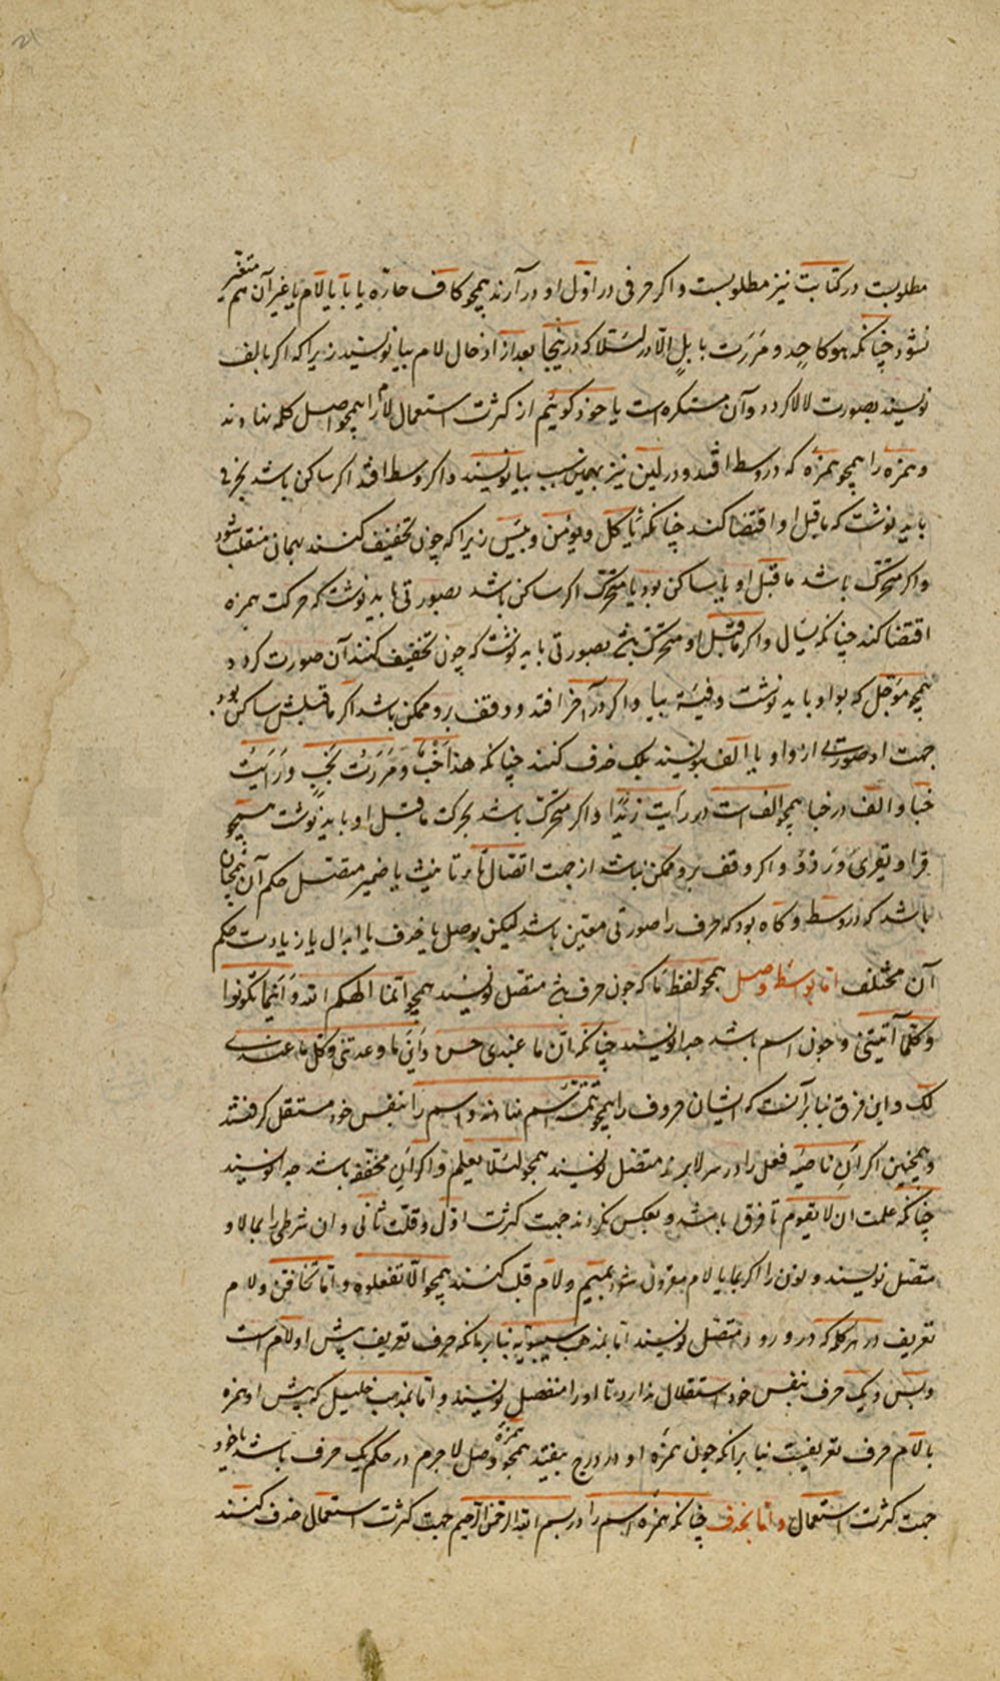 21
مطلوبست در کتابت نیز مطلوبست و اکر حرفی در اوّل او در آرند همچو کاف جارّه یا با یا لام یا غیر آن هم متغیر
نشود چنانکه هو کاحدٍ و مررت بابلٍ الّا در لئلا که درینجا بعد از ادخال لام بیا نویسند زیرا که اکر بالف
نویسند بصورت لالا کردد و آن مستکره است یا خود کوئیم از کثرت استعمال لام را همچو اصل کلمه نهادند
و همزه را همچو همزه که در وسط افتد و در لئن نیز بهمین سبب بیا نویسند و اکر وسط افتد اکر ساکن باشد بحرفی
باید نوشت که ماقبل او اقتضا کند چنانکه یأکل و یؤمن و بئس زیرا که چون تخفیف کنند بهمان منقلب شود
و اکر متحرّک باشد ماقبل او یا ساکن بود یا متحرّک اکر ساکن باشد بصورتی باید نوشت که حرکت همزه
اقتضا کند چنانکه یسأل و اکر ماقبل او متحرک باشد بصورتی باید نوشت که چون تخفیف کنند آن صورت کردد
همچو مؤجّل که بواو باید نوشت و فئة بیا و اکر در آخر افتد و وقف برو ممکن باشد اکر ماقبلش ساکن بود
جهت او صورتی از واو یا الف ننویسند بلک حذف کنند چنانکه هذا خبء و مررت بخبء و رأیت
خبأ و الف در خبا همچو الف است در رأیت زیدًا و اکر متحرّک باشد بحرکت ماقبل او باید نوشت همچو
قرأ و یقرئ و ردؤ و اکر وقف برو ممکن نباشد از جهت اتصال تاء تانیث یا ضمیر متصل حکم آن همچنان
باشد که در وسط و کاه بود که حرف را صورتی معین باشد لیکن بوصل یا حذف یا ابدال یا زیادت حکم
آن مختلف اما بواسطه وصل همچو لفظ ما که چون حرف باشد متصل نویسند همچو انّما الهکم الله و اینما تکونوا
و کلّما آتیتنی و چون اسم باشد جدا نویسند چنانکه ان ما عندی حسن و این ما وعدتنی و کل ما عندی
لک و این فرق بنا بر آنست که ایشان حروف را همچو تتمه اسم نهادند و اسم را بنفس خود مستقل کرفتند
و همچنین اکر ان ناصبه فعل را در سر لا برند متصل نویسند همچو لئلا یعلم و اکر ان مخففه باشد جدا نویسند
چنانکه علمت ان لا یقوم تا فرق باشد و بعکس نکردند جهت کثرت اوّل و قلّت ثانی و ان شرطی را بما و لا
متصل نویسند و نون را اکر بما یا لام مقرون شود بمیم و لام قلب کنند همچو الّا تفعلوه و امّا تخافن و لام
تعریف در هر کلمه که در رود متصل نویسند اما بمذهب سیبویه بنا بر انکه حرف تعریف پیش او لام است
و بس و یک حرف بنفس خود استقلال ندارد تا او را منفصل نویسند و اما بمذهب خلیل که پیش او همزه
با لام حرف تعریفست بنا بر انکه چون همزه او در درج بیفتد همچو همزه وصل لاجرم در حکم یک حرف باشد یا خود
جهت کثرت استعمال و اما بحذف چنانکه همزه اسم را در بسم الله الرحمن الرحیم جهت کثرت استعمال حذف کنند